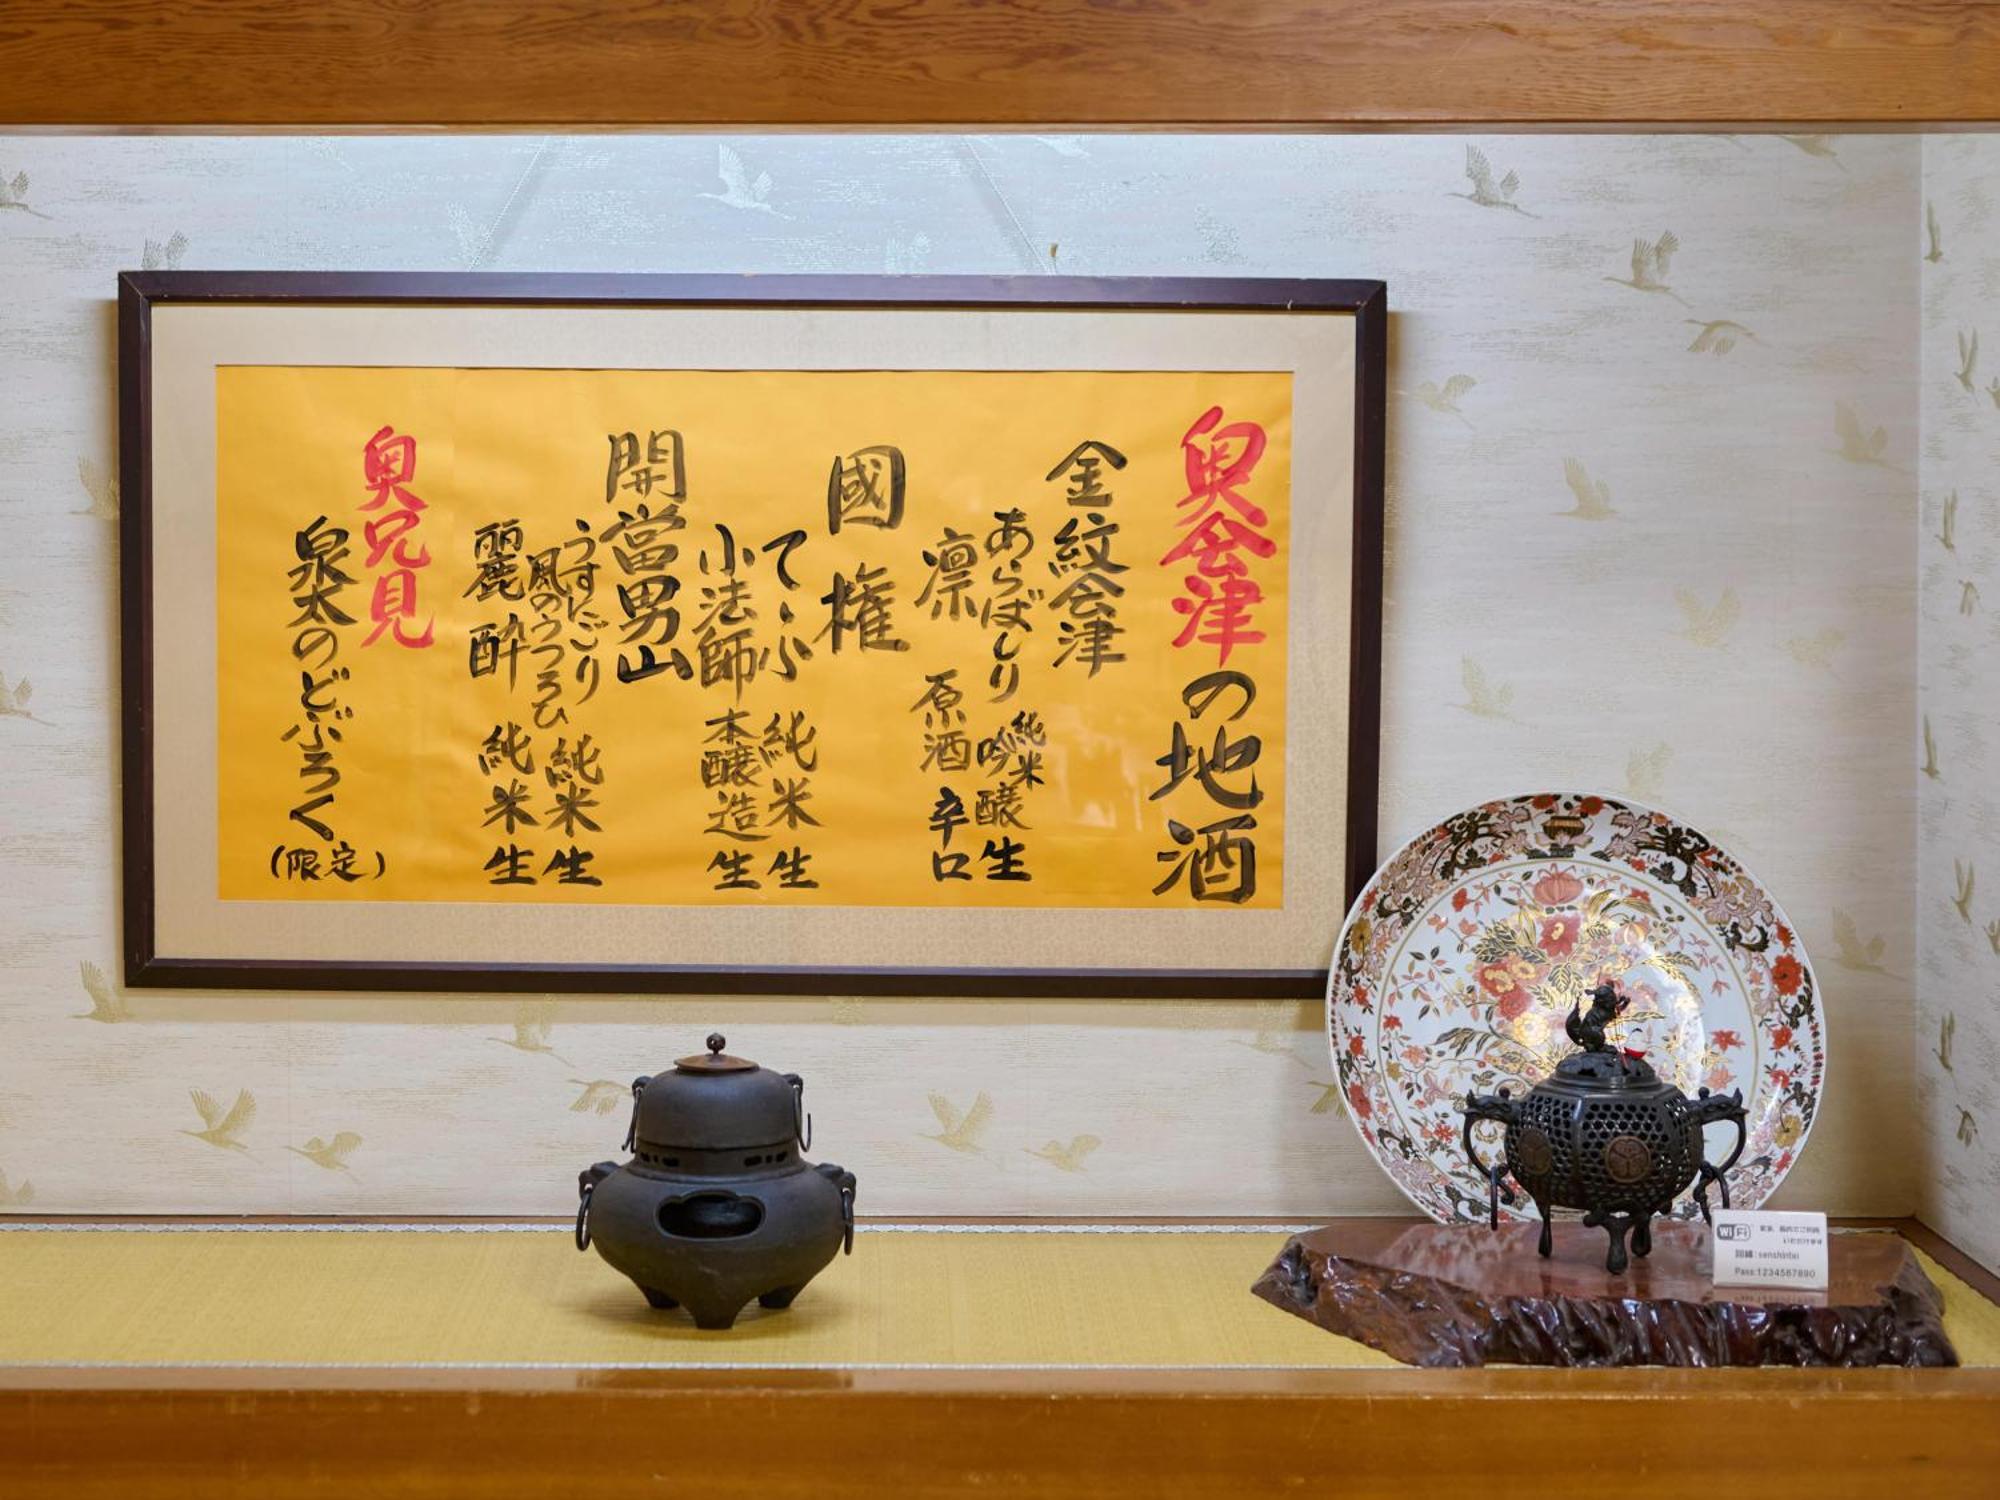 奥会津の地酒
金紋会津
あらばしり 純米吟醸生
凛 原酒 辛口
國権
てふ 純米生
小法師 本醸造生
開當男山
うすにごり 純米生
風のうつろひ
麗酔 純米生
奥只見
泉太のどぶろく
(限定)
WiFi
いただけます
回線:senshintei
Pass:1234567890